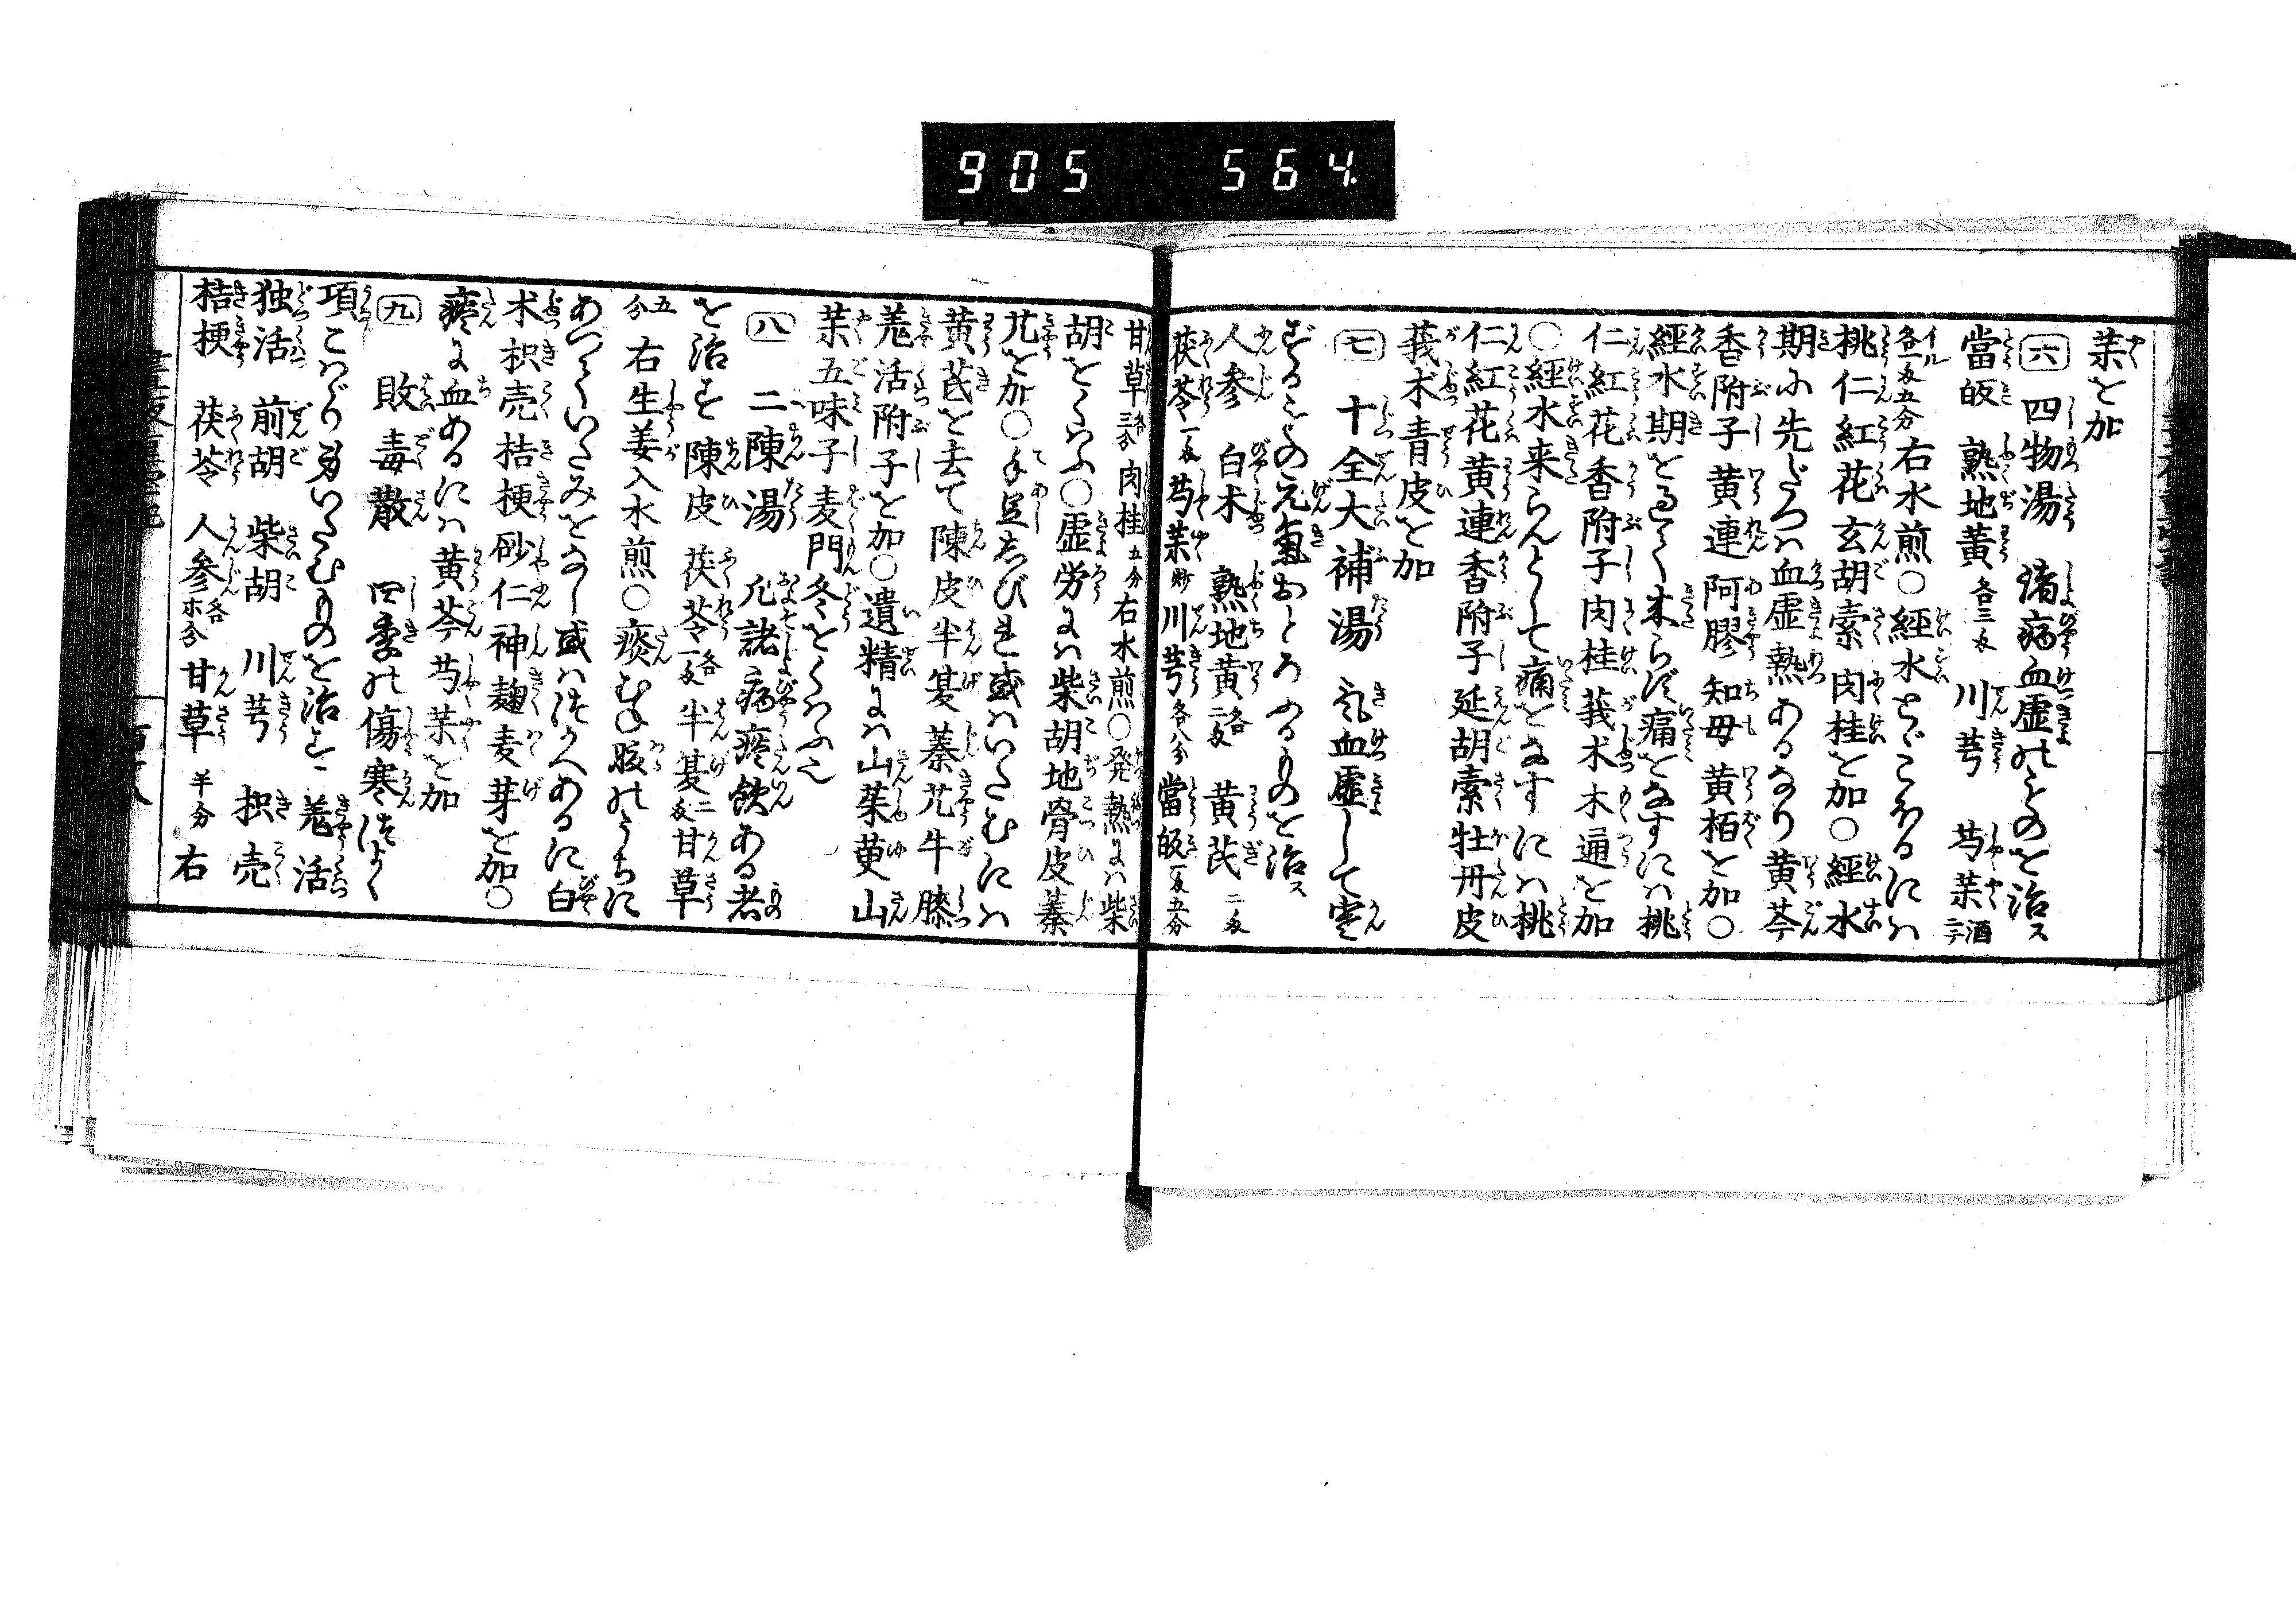 905 564
薬を加
六 四物湯 諸病血虚のものを治ス
當皈 熟地黄各三匁 川芎 芍薬酒ニテ
イル各一匁五分右水煎○經水とゞこほるにハ
桃仁紅花玄胡索肉桂を加○經水
期に先だつハ血虚熱あるなり黄芩
香附子黄連阿膠知母黄栢を加○
經水期を過て来らず痛をなすにハ桃
仁紅花香附子肉桂莪朮木通を加
○經水来らんとして痛をなすにハ桃
仁紅花黄連香附子延胡索牡丹皮
莪朮青皮を加
七 十全大補湯 気血虚して寒
元氣おとろふるものを治ス
人参 白朮 熟地黄各二匁 黄芪二匁
茯苓一匁芍薬炒川芎各八分當皈一匁五分
甘草各三分肉桂五分右水煎○発熱にハ柴
胡をくハふ○虚労にハ柴胡地骨皮蓁
艽を加○手足しびれ或ハいたむにハ
黄芪を去て陳皮半夏蓁艽牛膝
羗活附子を加○遺精にハ山茱萸山
薬五味子麦門冬をくハふべし
八 二陳湯 凡諸病痰飲ある者
を治す陳皮 茯苓各一匁半夏二匁甘草
五分右生姜入水煎○痰むね腹のうちに
あつていたみをなし或ハつかへあるに白
朮枳壳桔梗砂仁神麹麦芽を加○
痰に血あるにハ黄芩芍薬を加
九 敗毒散 四季の傷寒つよく
項こハゞり身いたむものを治す 羗活
独活 前胡 柴胡 川芎 枳壳
桔梗 茯苓 人参各 甘草半分 右